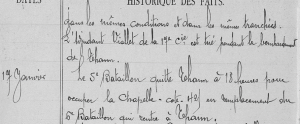 DATES
HISTORIQUE DES FAITS.
dans les mêmes conditions et dans les mêmes tranchées.
L'adjudant Viallet de la 17e Cie est tué pendant le bombardement
de Thann.
17 Janvier
Le 5e Bataillon quitte Thann à 18 heures pour
occuper la Chapelle - cote 425 en remplacement du
Bataillon qui rentre à Thann.